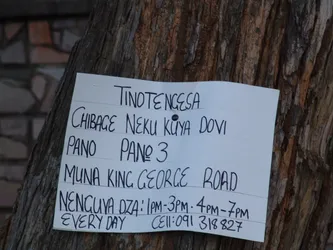 TINOTENGESA
CHIBAGE NEKU KUYA DOVI
PANO PANO 3
MUNA KING GEORGE ROAD
NENGUVA DZA: 1PM-3PM · 4PM-7PM
EVERY DAY CELL: 091 318827